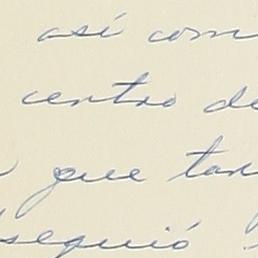 así com
centro de
que tan
seguió